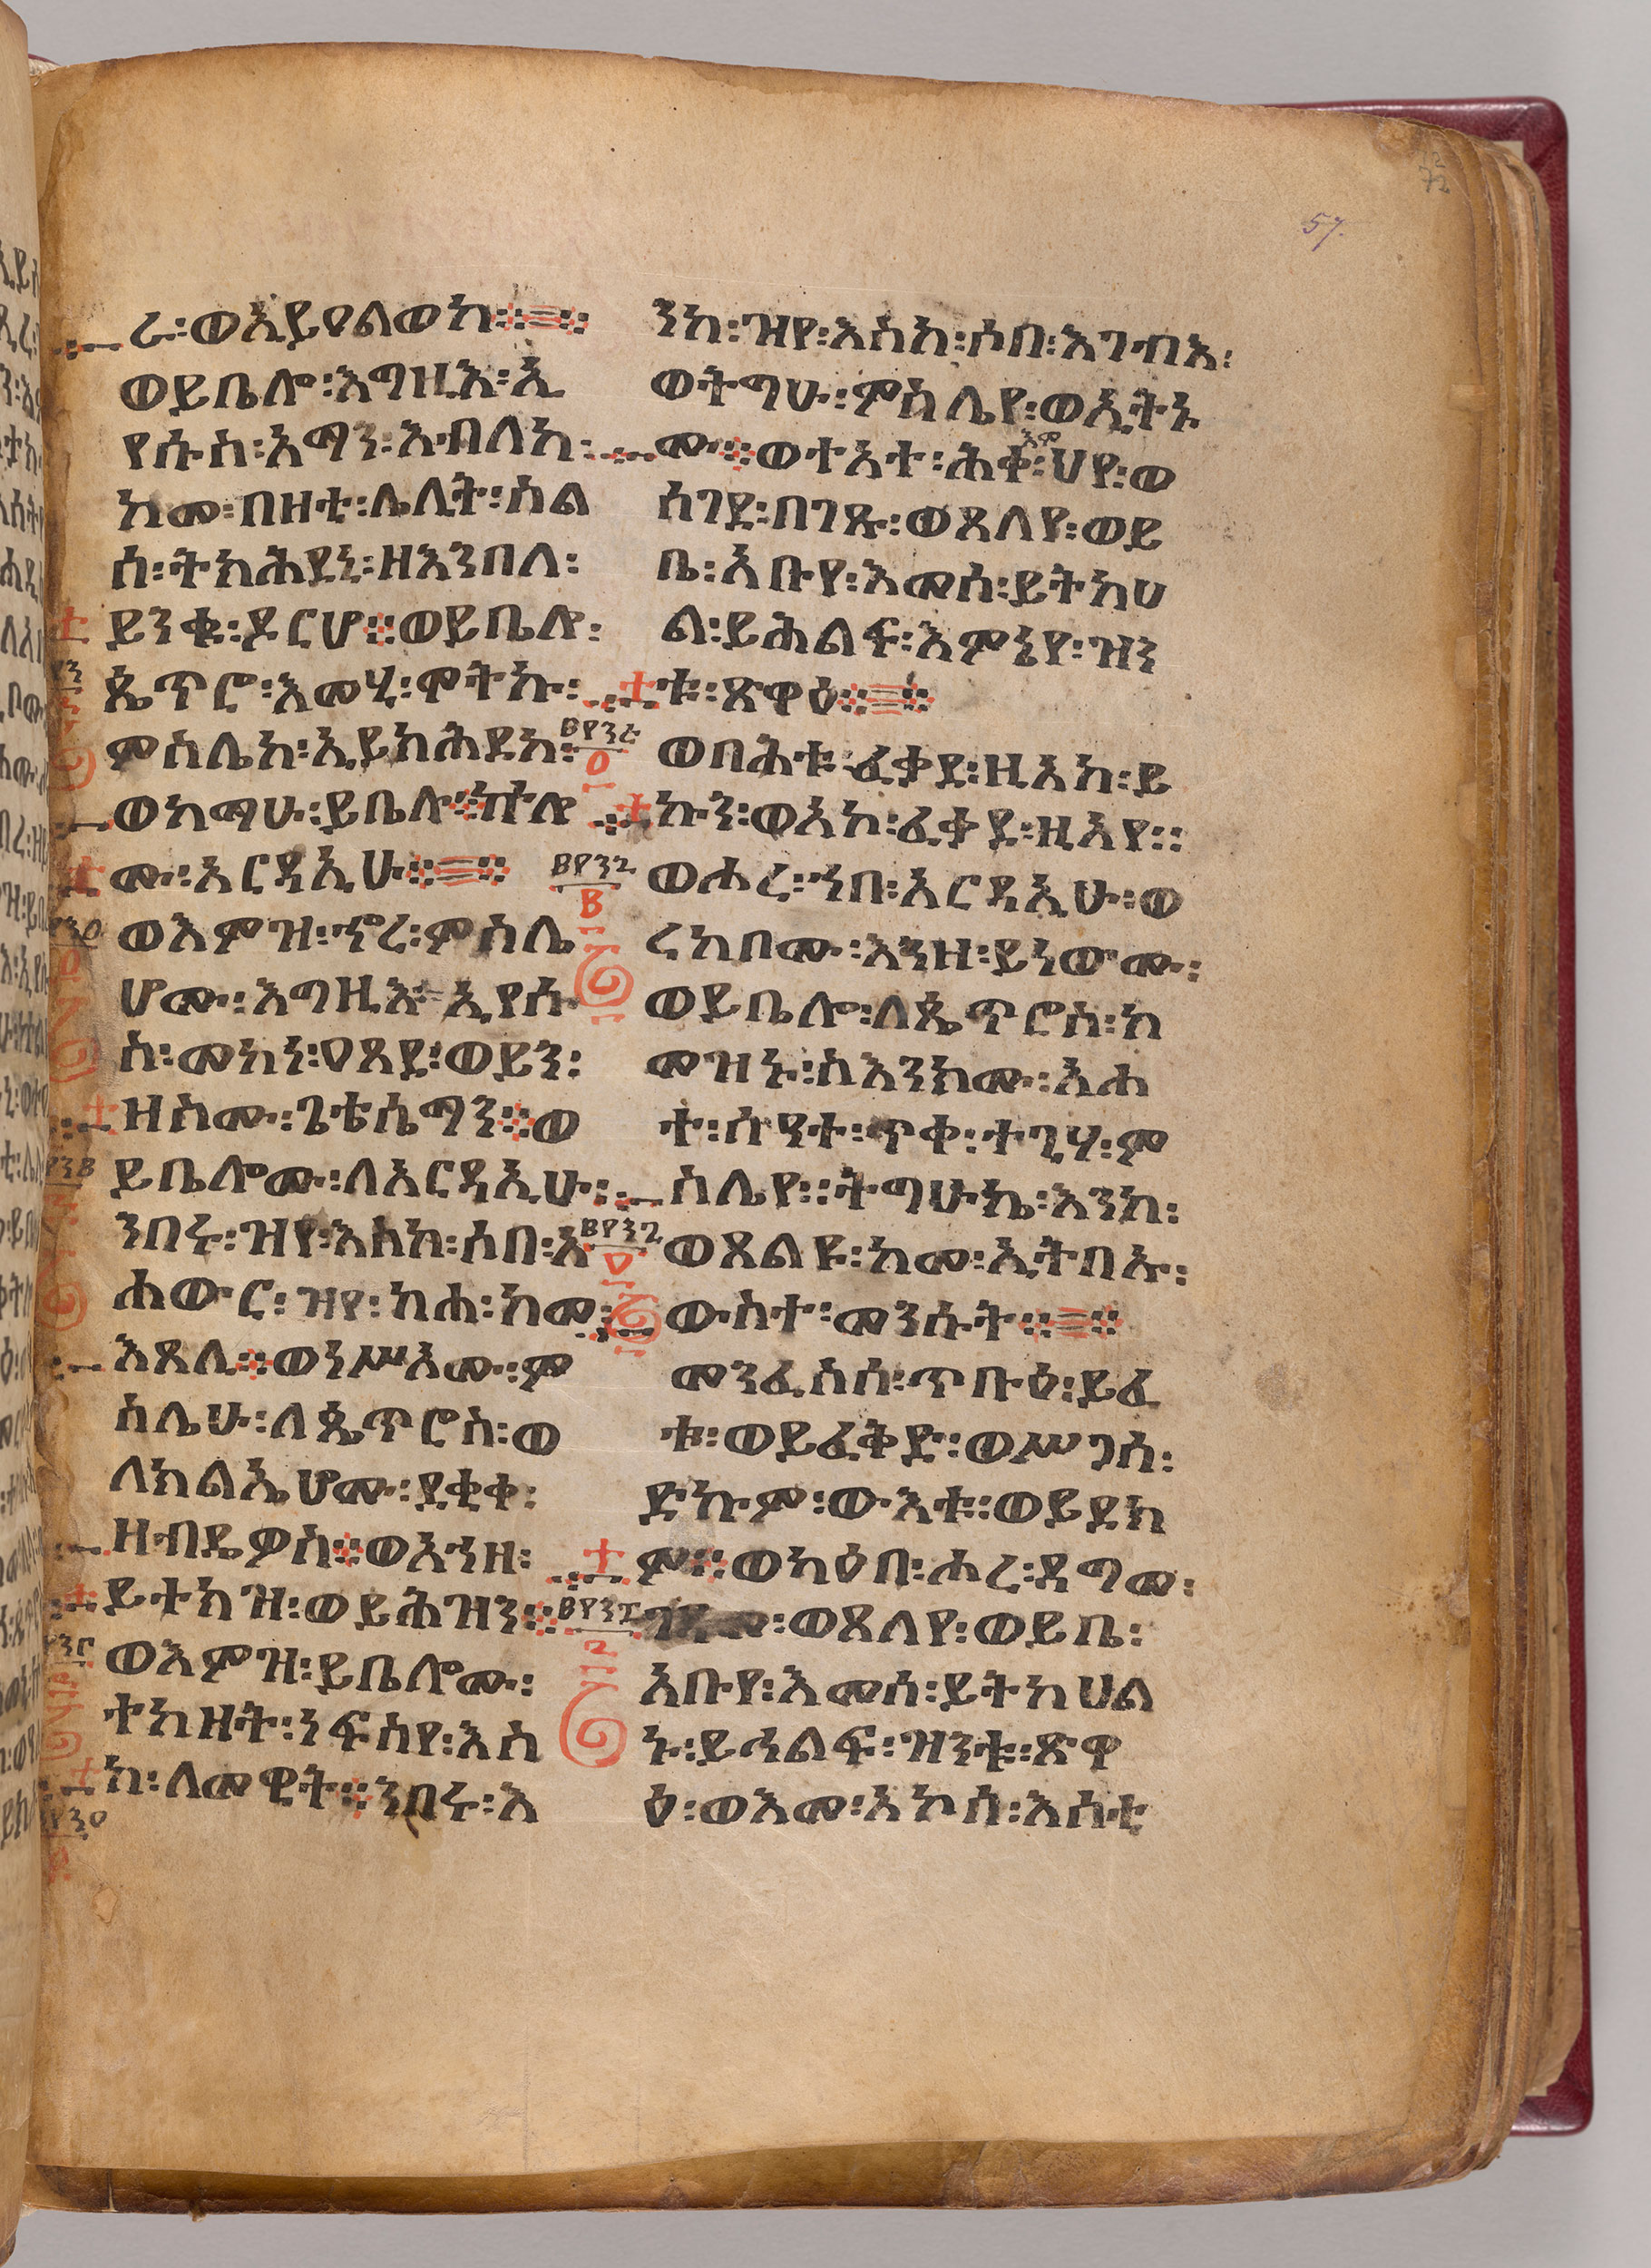 57.
72
ራ፡ወኢይዐልወከ፨
ወይቤሎ፡እግዚእ፡ኢ
የሱስ፡አማን፡እብለከ፡
ከመ፡በዛቲ፡ሌሊት፡ስል
ሰ፡ትክሕደኒ፡ዘእንበለ፡
ይንቁ፡ዶርሆ፨ወይቤሎ፡
ጴጥሮ፡እመሂ፡ሞትኩ፡
ምስሌከ፡ኢይክሕደከ፡
ወከማሁ፡ይቤሉ፨ኵሎ
ሙ፡አርዳኢሁ፨
ወእምዝ፡ኀረ፡ምስሌ
ሆሙ፡እግዚእ፡ኢየሱ
ስ፡መካነ፡ዐጸደ፡ወይን፡
ዘስሙ፡ጌቴሴማን፨ወ
ይቤሎሙ፡ለአርዳኢሁ፡
ንበሩ፡ዝየ፡እስከ፡ሶበ፡አ
ሐውር፡ዝየ፡ከሐ፡ከመ፡
እጸሊ፨ወነሥአሙ፡ም
ስሌሁ፡ለጴጥሮስ፡ወ
ለክልኤሆሙ፡ደቂቀ፡
ዘብዴዎስ፨ወአኀዘ፡
ይተክዝ፡ወይሕዝን፨
ወእምዝ፡ይቤሎሙ፡
ተከዘት፡ነፍስየ፡እስ
ከ፡ለመዊት፨ንበሩ፡እ
ንከ፡ዝየ፡እስከ፡ሶበ፡እገብእ፡
ወትግሁ፡ምስሌየ፡ወኢትኑ
ሙ፨ወተአተ፡ሕቀ፡ህየ፡ወ
ሰገደ፡በገጹ፡ወጸለየ፡ወይ
ቤ፡አቡየ፡እመሰ፡ይትከሀ
ል፡ይሕልፍ፡እምኔየ፡ዝን
ቱ፡ጽዋዕ፨
ወባሕቱ፡ፈቃደ፡ዚአከ፡ይ
ኩን፡ወአኮ፡ፈቃደ፡ዚአየ።
ወሐረ፡ኀበ፡አርዳኢሁ፡ወ
ረከበሙ፡እንዘ፡ይነውሙ፡
ወይቤሎ፡ለጴጥሮስ፡ከ
መዝኑ፡ስእንክሙ፡አሐ
ተ፡ሰዓተ፡ጥቀ፡ተጊሃ፡ም
ስሌየ።ትግሁኬ፡እንከ፡
ወጸልዩ፡ከመ፡ኢትባኡ፡
ውስተ፡መንሱት፨
መንፈስሰ፡ጥቡዕ፡ይፈ
ቱ፡ወይፈቅድ፡ወሥጋሰ፡
ድኩም፡ውእቱ፡ወይደክ
ም፨ወካዕበ፡ሐረ፡ዳግመ፡
ወጸለየ፡ወይቤ፡
አቡየ፡እመሰ፡ይትከሀል
ኑ፡ይኅልፍ፡ዝንቱ፡ጽዋ
ዕ፡ወእመ፡አኮሰ፡እሰቲ